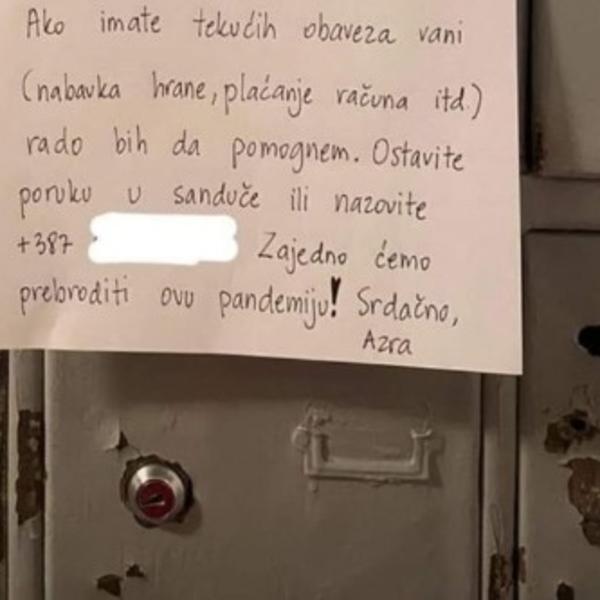 Ako imate tekućih obaveza vani
(nabavka hrane, plaćanje računa itd.)
rado bih da pomognem. Ostavite
poruku u sanduče ili nazovite
+387 Zajedno ćemo
prebroditi ovu pandemiju! Srdačno,
Azra